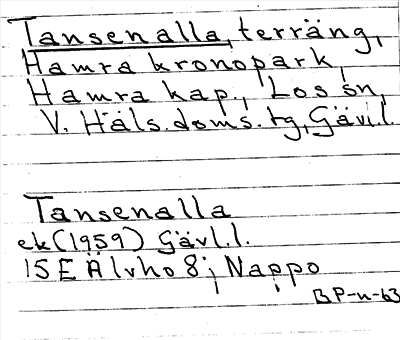 Tansenalla, terräng,
Hamra kronopark,
Hamra kap., Los sn,
V. Häls. doms. tg, Gävl.l.
Tansenalla
ek (1959) Gävl.l.
15E Älvho 8j Nappo
BP-n-63